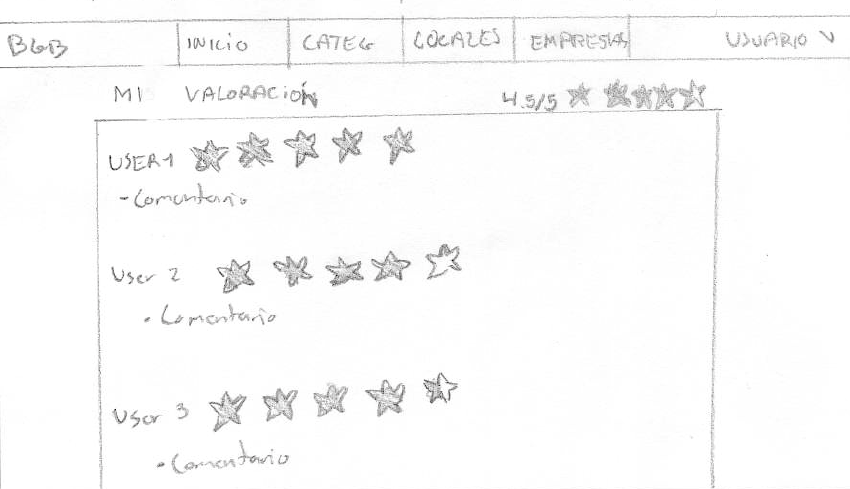 BGB INICIO CATEG LOCALES EMPRESAS USUARIO V
MI VALORACIÓN 4.5/5
USER 1
- Comentario
User 2
- Comentario
User 3
- Comentario